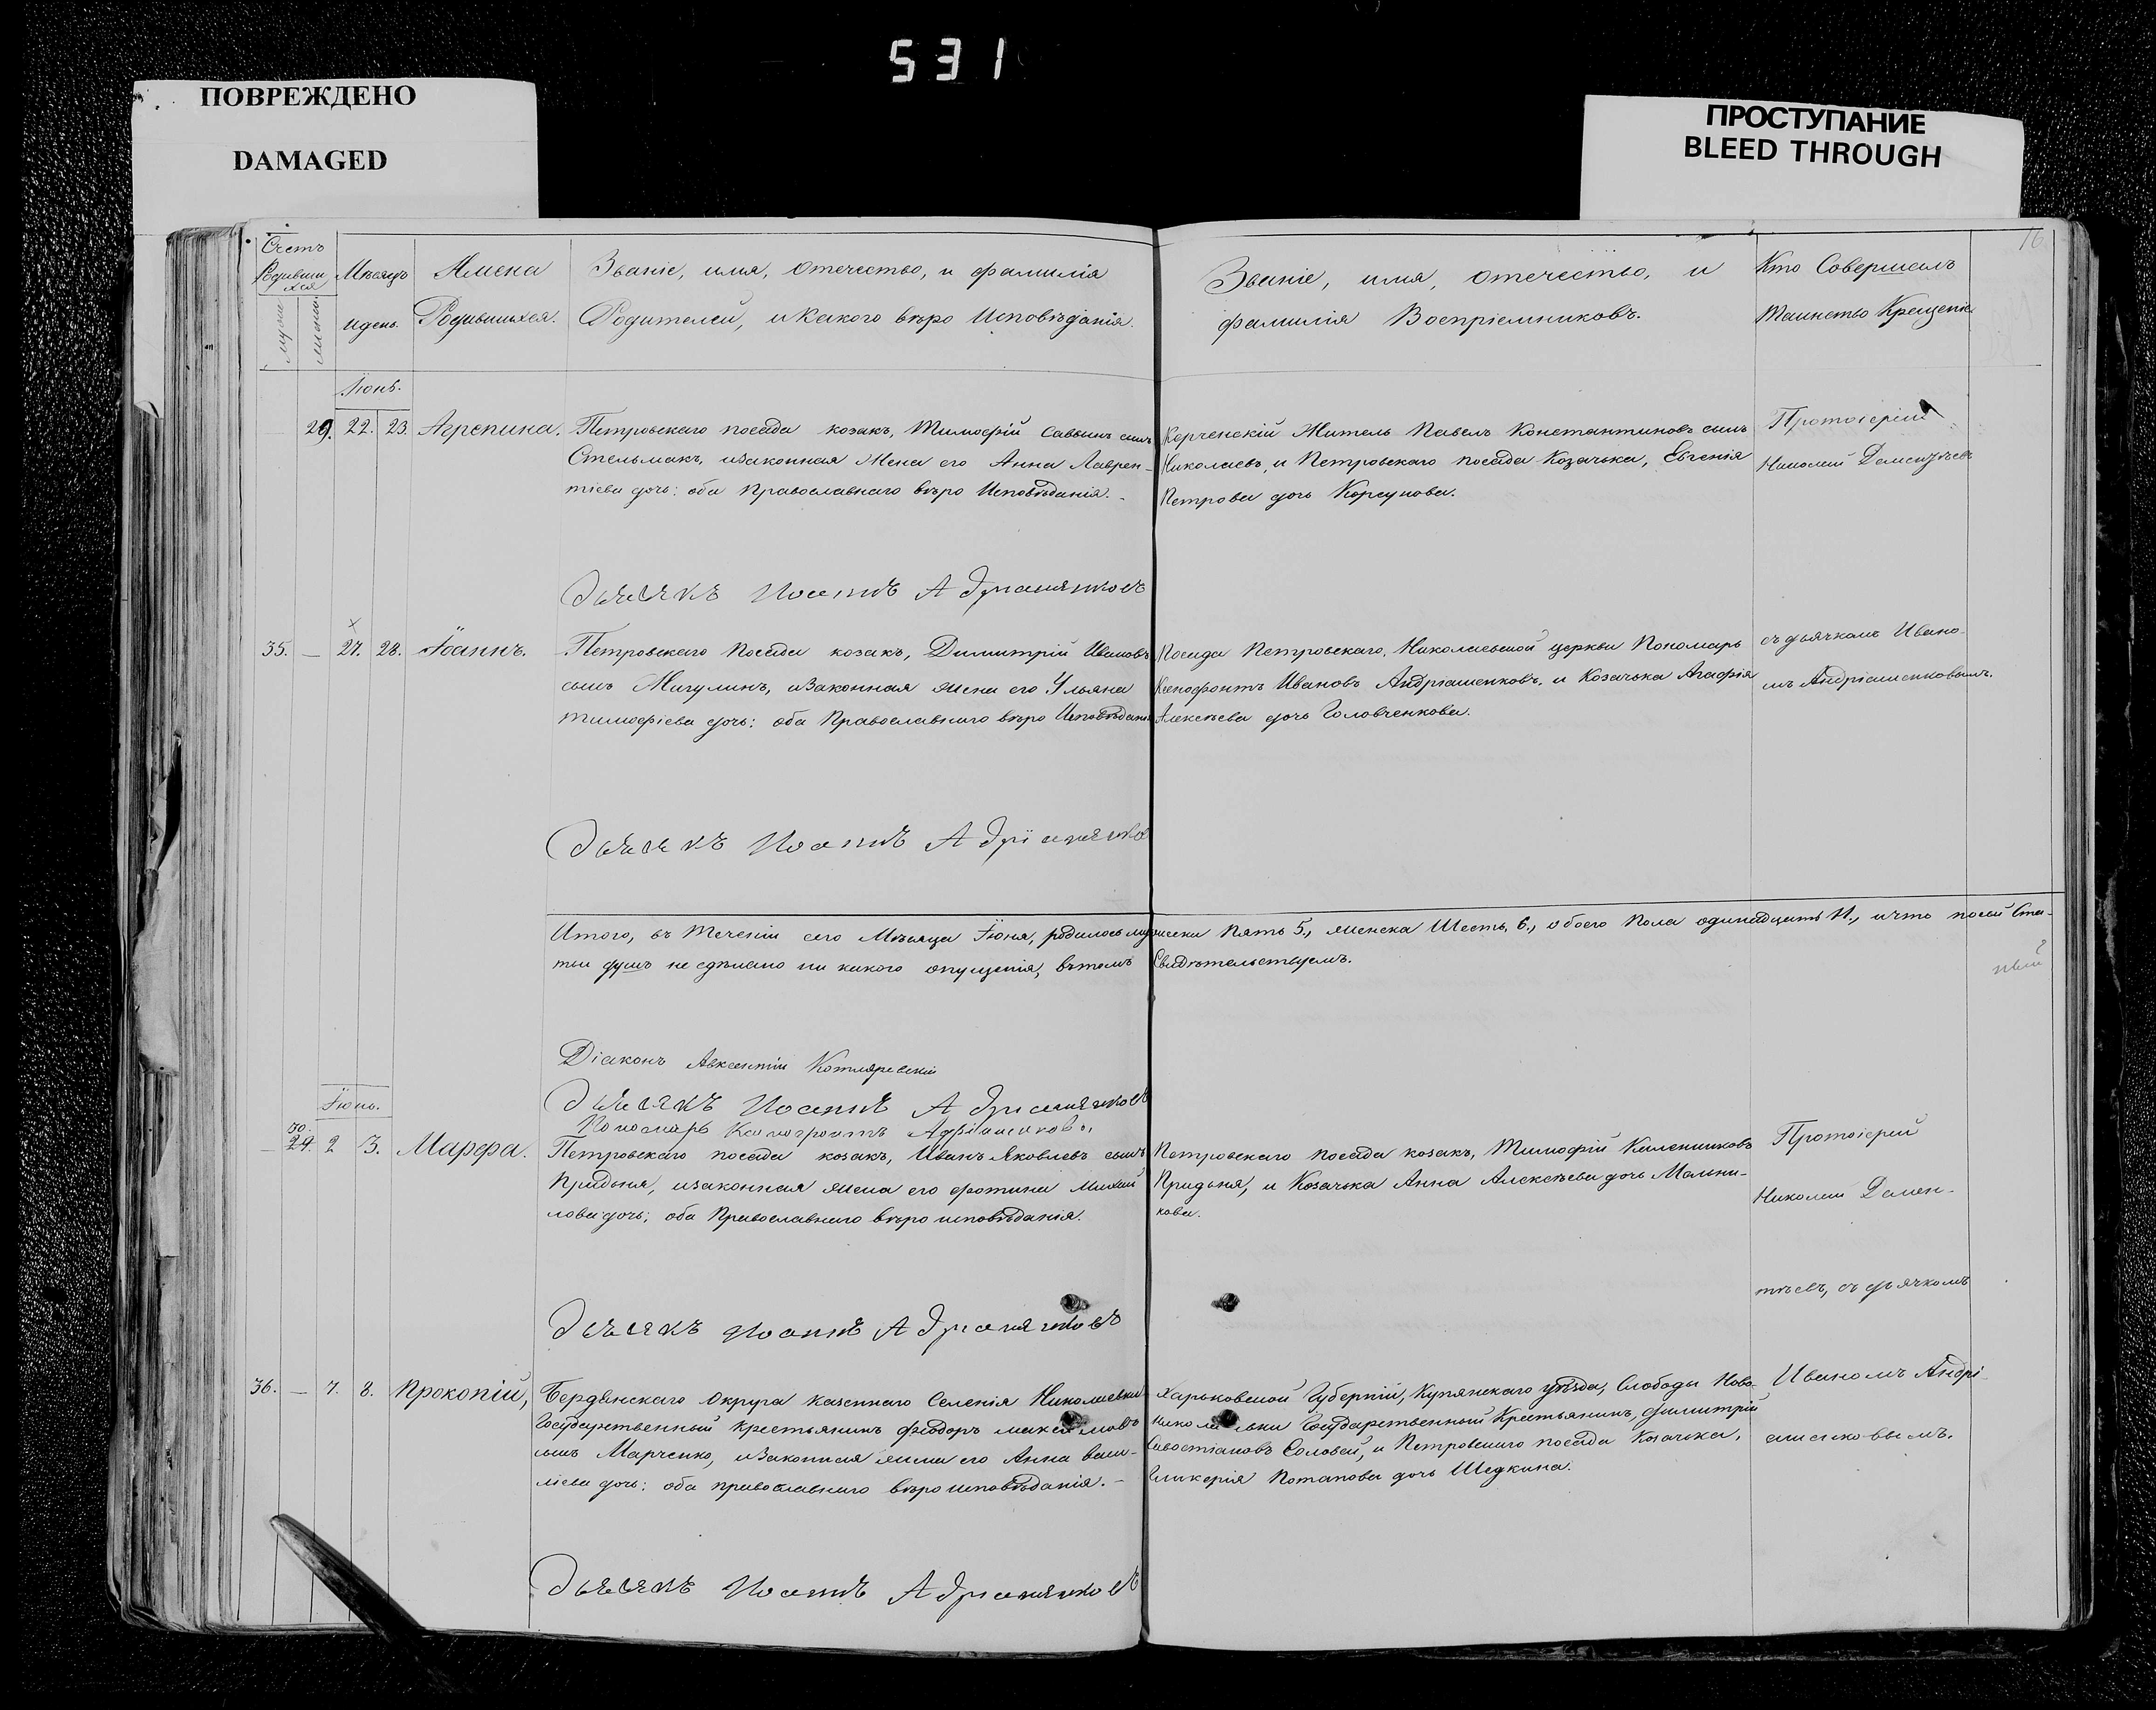 531
ПОВРЕЖДЕНО
DAMAGED
ПРОСТУПАНИЕ
BLEED THROUGH
16
Счетъ Родившихся
Мѣсяцъ и день.
Имена Родившихся.
Званіе, имя, отечество, и фамилія
Родителей, и какого вѣро Исповѣданія.
Званіе, имя, отечество, и
фамилія Воспріемниковъ.
Кто Совершалъ
Таинство Крещенія
Іюнь.
29. 22. 23. Агрепина.
Петровскаго посада козакъ, Тимофій Саввинъ сынъ
Стельмахъ, изаконная Жена его Анна Лаврен-
тіева дочь: оба Православнаго вѣро Исповѣданія.
Керченскій Житель Павелъ Константиновъ сынъ
Николаевъ, и Петровскаго посада Козачька, Евгенія
Петрова дочь Корсунова.
Протоіерей
Николай Дементѣевъ
Дьячокъ Иоаннъ Адриашенковъ
35. — 27. 28. Іоаннъ.
Петровскаго посада козакъ, Димитрій Ивановъ
сынъ Мигулинъ, изаконная жена его Ульяна
Тимофіева дочь: оба Православнаго вѣро Исповѣданія
Посада Петровскаго, Николаевской церкви Пономарь
Ксенофонтъ Ивановъ Андріашенковъ, и Козачька Агафія
Алексѣева дочь Головченкова.
съ дьячкомъ Ивано-
мъ Андріашенковымъ.
Дьячокъ Иоаннъ Адріашенко
Итого, въ теченіи сего Мѣсяца Іюня, родилось мужеска Пять 5., женска Шесть 6., обоего пола одинадцать 11., ичто посей Ста-
тьи душъ не сдѣлано ни какого опущенія, вътомъ Свидѣтельствуемъ.
Діаконъ Авксентій Котляревскій
Дьячокъ Иоаннъ Адриашенковъ
Пономарь Ксенофонтъ Адріашенковъ
Іюнь.
30. 29. 2 3. Марфа.
Петровскаго посада козакъ, Иванъ Яковлевъ сынъ
Придыня, изаконная жена его Фотина Михай
лова дочь; оба Православнаго вѣро исповѣданія.
Петровскаго посада козакъ, Тимофій Калениковъ
Придыня, и Козачька Анна Алексѣева дочь Мальни-
кова.
Протоіерей
Николай Демен-
тѣевъ, съ дьячкомъ
Дьячокъ Иоаннъ Адриашенковъ
36. — 7. 8. Прокопій,
Бердянскаго Округа казеннаго Селенія Николаевки
Государственный крестьянинъ Фіодоръ Максимовъ
сынъ Марченко, изаконная жена его Анна Васи-
ліева дочь: оба православнаго вѣро исповѣданія. —
Харьковской Губерніи, Купянскаго уѣзда, Слободы Ново-
николаевки Государственный Крестьянинъ, Димитрій
Савостіановъ Соловей, и Петровскаго посада Козачька,
Гликерія Потапова дочь Шедкина.
Иваномъ Андрі-
ашенковымъ.
Дьячокъ Иоаннъ Адриашенковъ